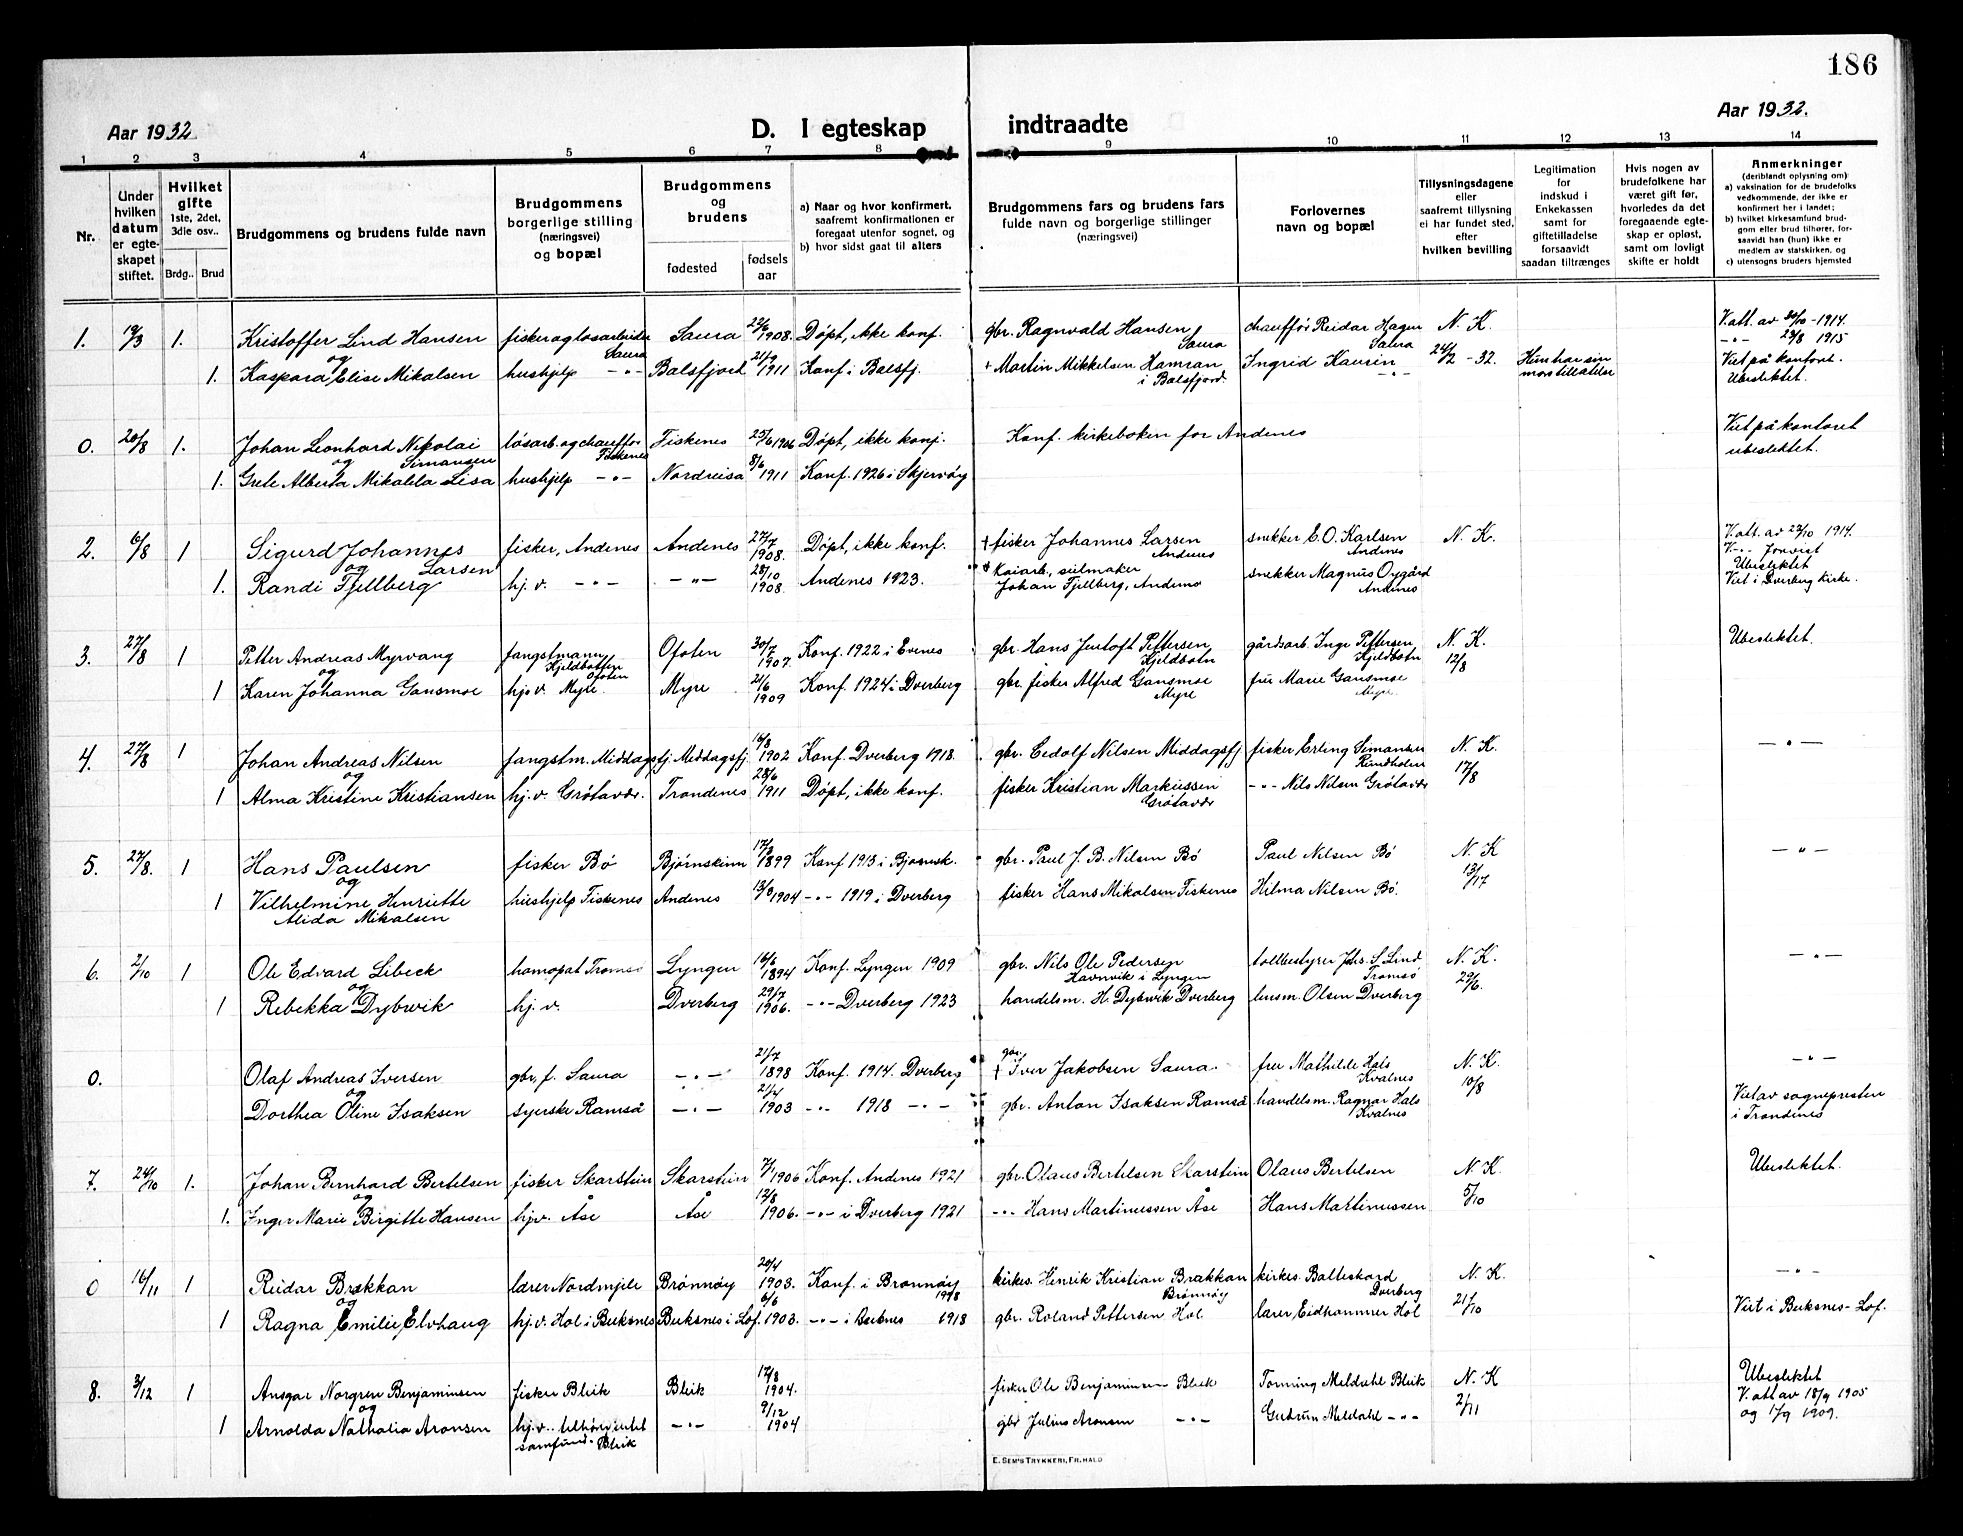 186
Aar 1932
D. I egteskap indtraadte
Aar 1932.
1 2 3 4 5 6 7 8 9 10 11 12 13 14
Nr.
Under hvilken datum er egteskapet stiftet.
Hvilket gifte 1ste, 2det, 3dle osv..
Brdg.. Brud
Brudgommens og brudens fulde navn
Brudgommens borgerlige stilling (næringsvei) og bopæl
Brudgommens og brudens
fødested
fødsels aar
a) Naar og hvor konfirmert, saafremt konfirmationen er foregaat utenfor sognet, og
b) hvor sidst gaat til alters
Brudgommens fars og brudens fars fulde navn og borgerlige stillinger (næringsvei)
Forlovernes navn og bopæl
Tillysningsdagene eller saafremt tillysning ei har fundet sted, efter hvilken bevilling
Legitimation for indskud i Enkekassen samt for giftetilladelse forsaavidt saadan tiltrænges
Hvis nogen av brudefolkene har været gift før, hvorledes da det foregaaende egteskap er opløst, samt om lovligt skifte er holdt
Anmerkninger (deriblandt oplysning om):
a) vaksination for de brudefolks vedkommende, der ikke er konfirmert her i landet;
b) hvilket kirkesamfund brudgom eller brud tilhører, forsaavidt han (hun) ikke er medlem av statskirken, og
c) utensogns bruders hjemsted
1. 19/3 1. Kristoffer Lind Hansen fisker og løsarbeider Saura Saura 22/6 1908. Døpt, ikke konf. gbr. Ragnvald Hansen Saura chauffør Reidar Hagen Saura N. K. V. att. av 30/10 - 1914.
og -"- 23/8 1915
1. Kaspara Elise Mikalsen hushjelp -"- Balsfjord 21/9 1911 Konf. i Balsfj. + Martin Mikkelsen Hamran i Balsfjord. Ingrid Hansen -"- 24/2 - 32. Hun har sin mors tillatelse Viet på kontoret. Ubeslektet.
0. 20/8 1. Johan Leonhard Nikolai Simansen løsarb. og chauffør Fiskenes Fiskenes 25/6 1906 Døpt, ikke konf. Konf. kirkeboken for Andenes Viet på kontoret
og ubeslektet.
1. Grete Alberta Mikalila Lisa hushjelp -"- Nordreisa 8/6 1911 Konf. 1926 i Skjervøy
2. 6/8 1 Sigurd Johannes Larsen fisker, Andenes Andenes 27/7 1908. Døpt, ikke konf. + fisker Johannes Larsen Andenes snekker E. O. Karlsen Andenes N. K. V. att. av 22/10 1914.
og V. -"- forvist
1. Randi Fjellberg hj. v. -"- -"- 28/10 1908. Andenes 1923. Kaiarb., seilmaker Johan Fjellberg, Andenes snekker Magnus Oygård Andenes Ubeslektet Viet i Dverberg Kirke.
3. 27/8 1 Petter Andreas Myrvang fangstmann Kjeldbotten Ofoten Ofoten 30/7 1907. Konf. 1922 i Evenes gbr. Hans Jentoft Pettersen Kjeldbotn gårdsarb. Inge Pettersen Kjeldbotn N. K. Ubeslektet.
og
1 Karen Johanna Gansmoe hj. v. Myre. Myre 21/6 1909 Konf. 1924 i Dverberg gbr. fisker Alfred Gansmoe Myre frue Marie Gansmoe Myre. 12/8
4. 27/8 1 Johan Andreas Nilsen fangstm. Middagsfj. Middagsfj. 16/8 1902 Konf. Dverberg 1918. gbr. Eedolf Nilsen Middagsfj. fisker Erling Simansen Rindholm N. K. -"-
og
1 Alma Kristine Kristiansen hj. v. Grøtavær. Trondenes 28/6 1911 Døpt, ikke konf. fisker Kristian Markussen Grøtavær -"- Nils Nilsen Grøtavær 17/8
5. 27/8. 1 Hans Paulsen fisker Bø Bjørnskinn 17/2 1899 Konf. 1913 i Bjørnsk. gbr. Paul J. B. Nilsen Bø Paul Nilsen Bø N. K -"-
og
1 Vilhelmine Henriette Alida Mikalsen hushjelp Fiskenes Andenes 13/9 1904 -"- 1919 i Dverberg fisker Hans Mikalsen Fiskenes Hilma Nilsen Bø. 13/17
6. 2/10 1 Ole Edvard Libeck homopat Tromsø Lyngen 16/6 1894 Konf. Lyngen 1909 gbr. Nils Ole Pedersen Havnvik i Lyngen tollbestyrer Johs. S. Lind Tromsø N. K. -"-
og
1 Rebekka Dybwik hj. v. Dverberg 29/7 1906. -"- Dverberg 1923 handelsm. H. Dybwik Dverberg lensm. Olsen Dverberg 29/6.
0. Olaf Andreas Iversen gbr, f. Saura -"- 21/7 1898 Konf. 1914. Dverberg gbr. + Iver Jakobsen Saura. frue Mathilde Hals Kvalnes N. K. -"-
og
Dorthea Oline Isaksen syerske Ramså -"- 21/4 1903 -"- 1918 -"- gbr. Anton Isaksen Ramså handelsm. Ragnar Hals Kvalnes 10/8 Viet av sognepresten i Trondenes
7. 24/10 1. Johan Bernhard Bertelsen fisker Skarstein Skarstein 7/1 1906 Konf. Andenes 1921 gbr. Olaus Bertelsen Skarstein Olaus Bertelsen N. K. Ubeslektet.
og
1. Inger Marie Birgitte Hansen hj.v. Åse Åse 12/8 1906. -"- i Dverberg 1921 -"- Hans Martinussen Åse Hans Martinussen 5/10
0 16/11 1 Reidar Brækkan lærer Nordmjele Brønnøy 20/4 1903. Konf. i Brønnøy 1918 kirkes. Henrik Kristian Brækkan Brønnøy kirkes. Balteskard Dverberg N. K. -"-
og
1 Ragna Emilie Elvhaug hj. v. Hol i Buksnes Buksnes i Lof. 6/6 1903. -"- i Buksnes 1918 gbr. Roland Pettersen Hol lærer Eidhammer Hol 21/10 Viet i Buksnes - Lof.
8. 3/12 1 Ansgar Norgren Benjaminsen fisker Bleik Bleik 17/8 1904. fisker Ole Benjaminsen Bleik Tomming Meldahl Bleik N. K Ubeslektet
og V. att av 18/9 1905
1 Arnolda Nathalia Aronsen hj.v. tilhør. intet samfund. Bleik -"- 9/12 1904 gbr Julius Aronsen -"- Gudrun Meldahl -"- 2/11 og 1/9 1909.
E. SEM'S TRYKKERI, FR.HALD